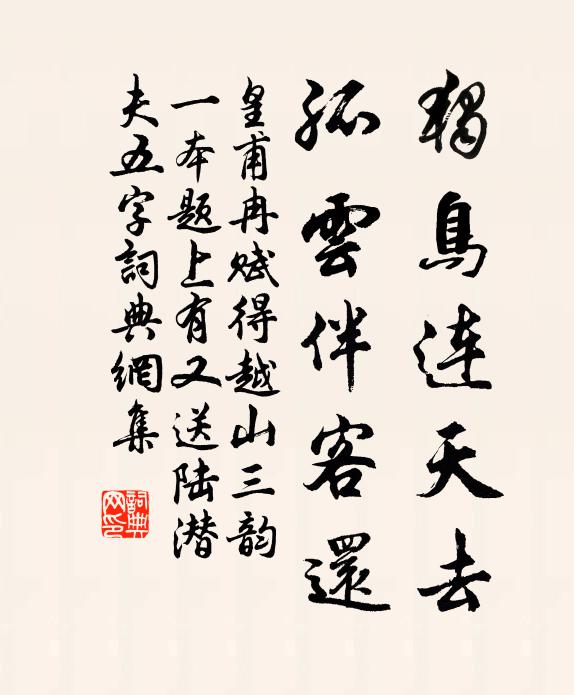 獨鳥連天去
孤雲伴客還
皇甫冉赋得越山三韵
一本題上有又送陆潜
夫五字詞典網集
詞典
网印